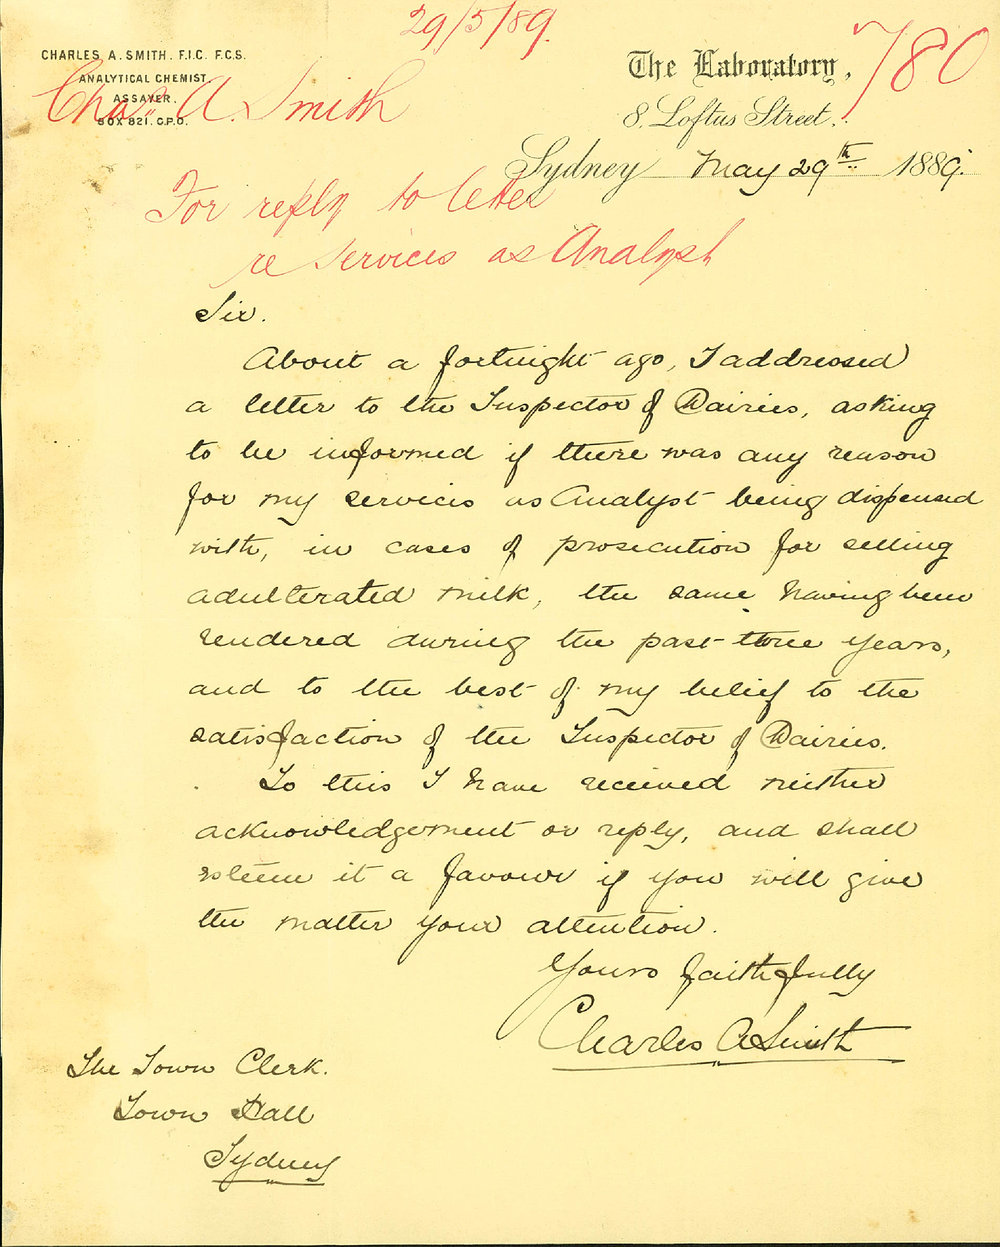 29/5/89.
780
CHARLES A. SMITH. F.I.C. F.C.S.
ANALYTICAL CHEMIST
ASSAYER.
BOX 821. G.P.O.
Chas. A. Smith
The Laboratory,
8. Loftus Street.
Sydney May 29th 1889.
For reply to letter
re services as Analyst
Sir.
About a fortnight ago, I addressed
a letter to the Inspector of Dairies, asking
to be informed if there was any reason
for my services as Analyst being dispensed
with, in cases of prosecution for selling
adulterated milk, the same having been
rendered during the past three years,
and to the best of my belief to the
satisfaction of the Inspector of Dairies.
To this I have received neither
acknowledgement or reply, and shall
esteem it a favour if you will give
the matter your attention.
Yours faithfully
Charles A Smith
The Town Clerk.
Town Hall
Sydney